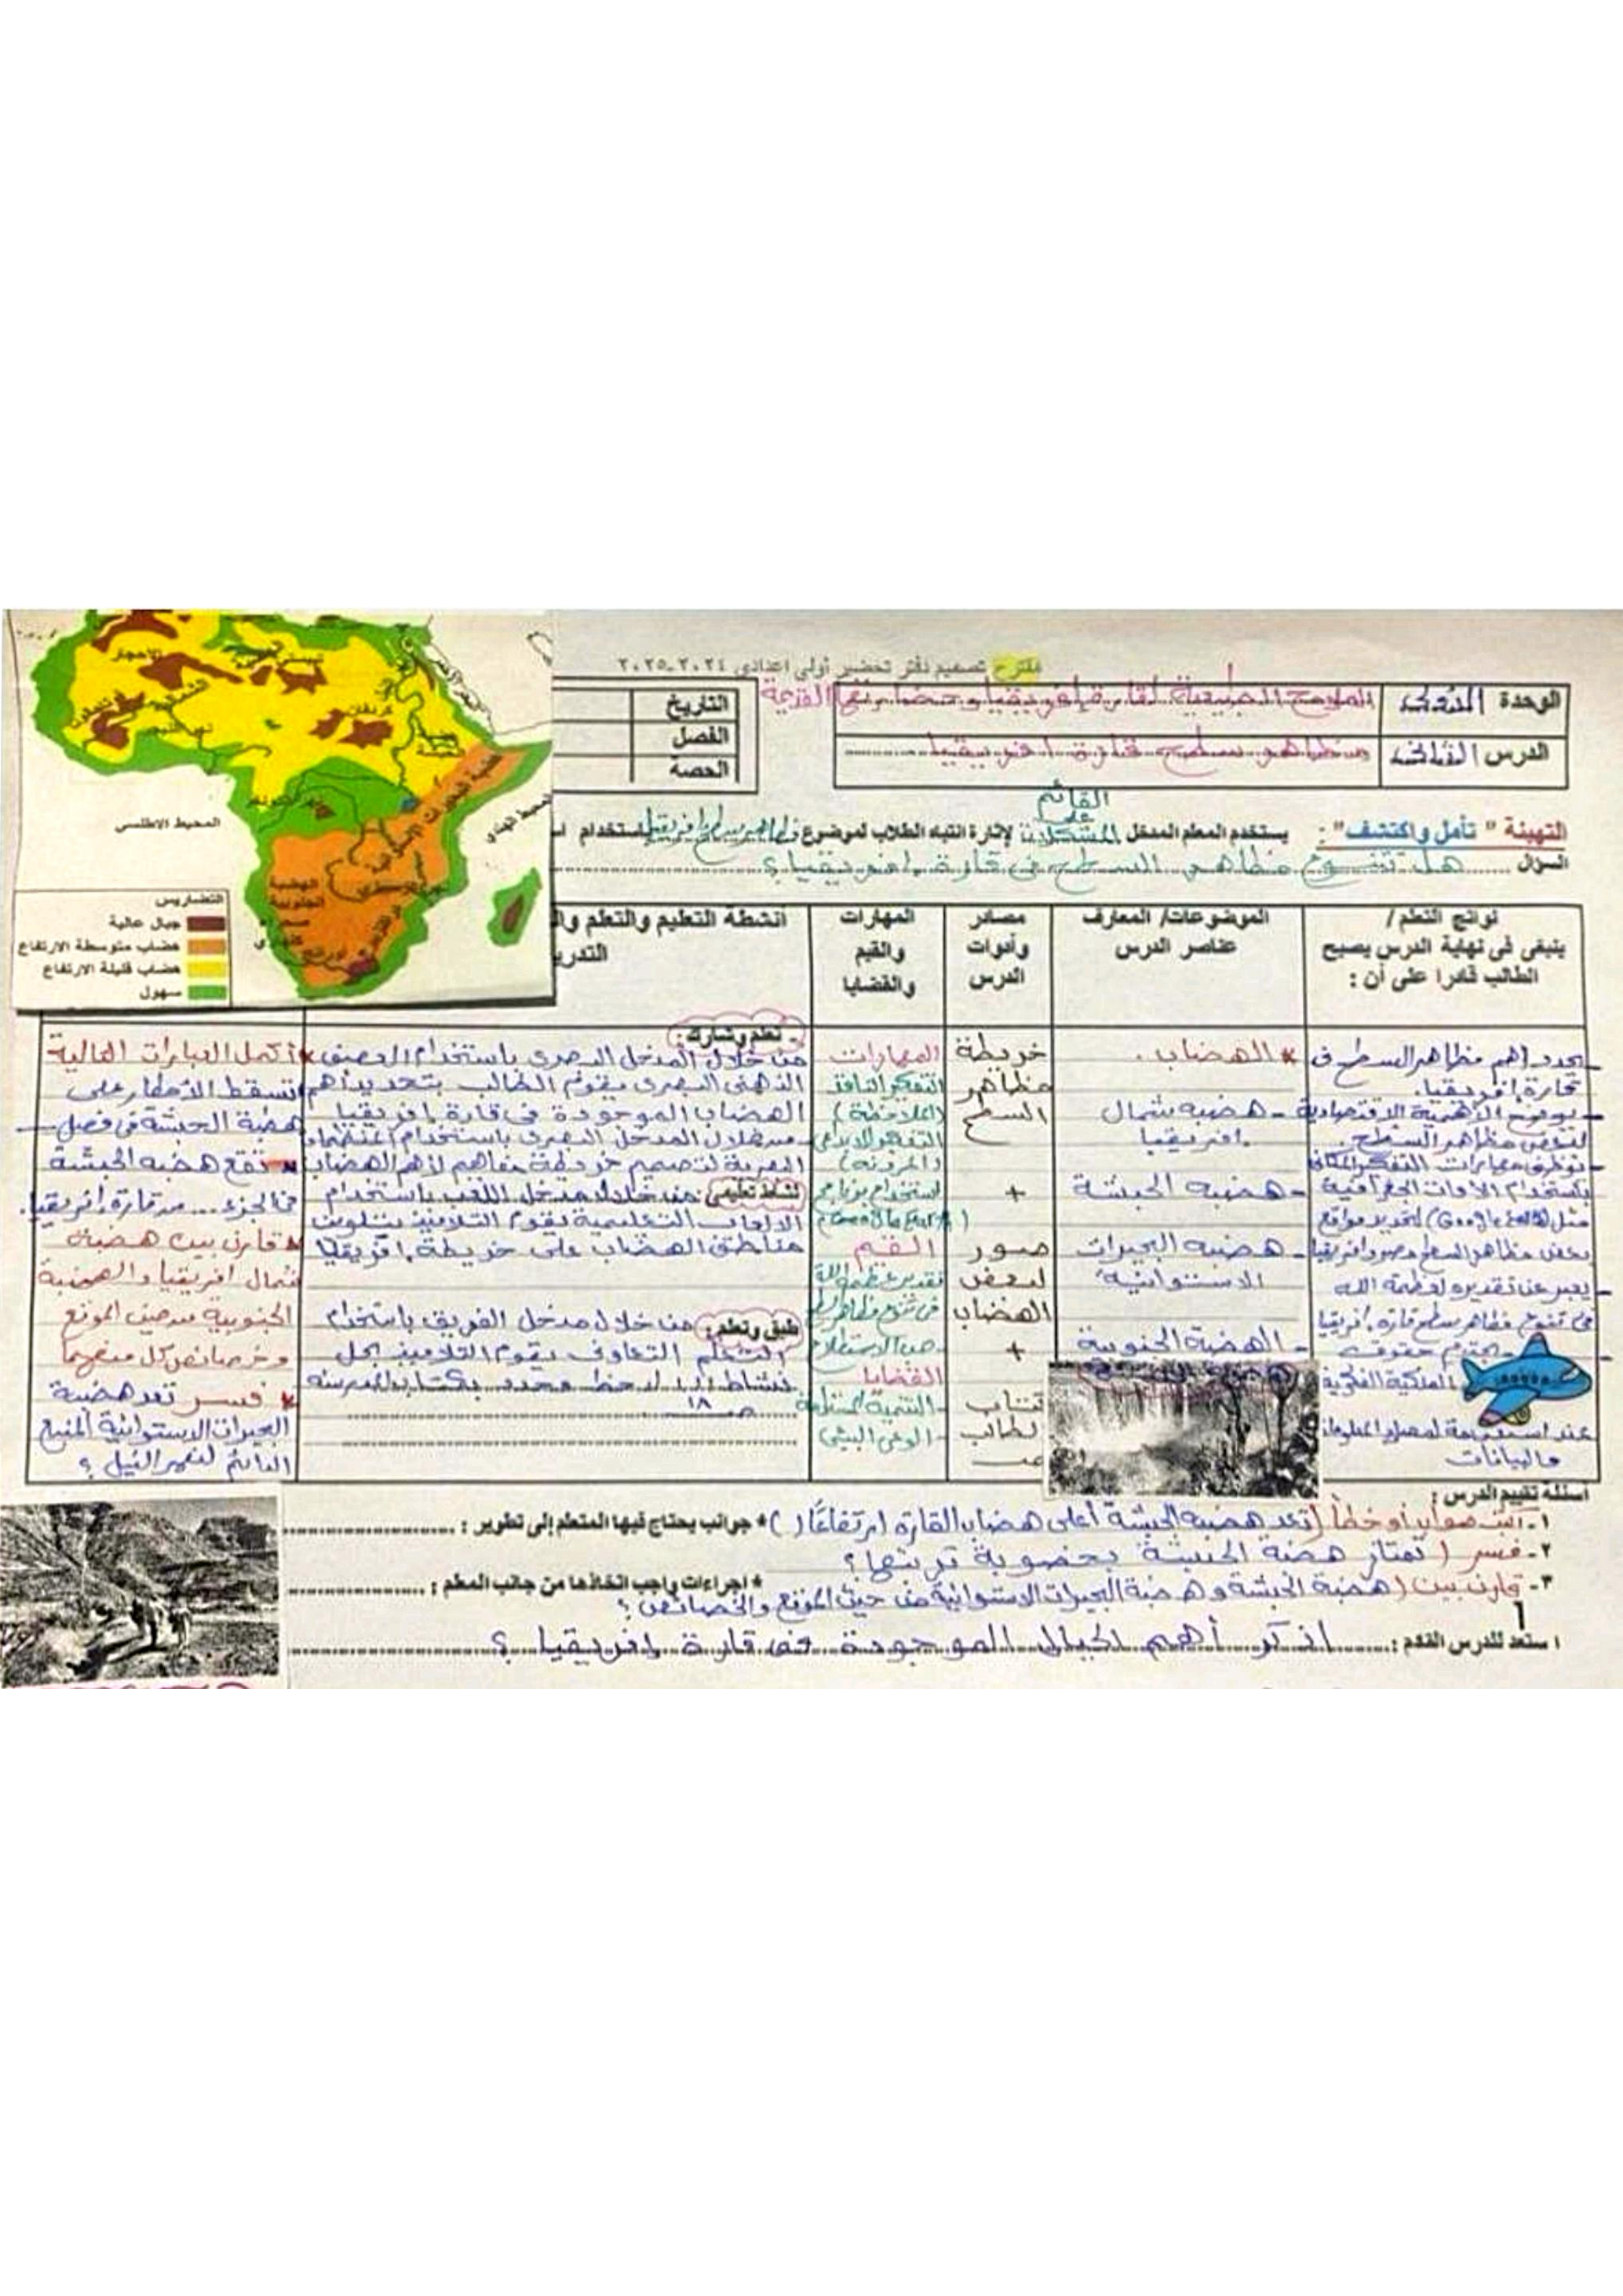 مقترح تصميم دفتر تحضير أولى اعدادى ٢٠٢٤-٢٠٢٥
الوحدة الأولى
الملامح الطبيعية لقارة إفريقيا وحضارتها القديمة
الدرس الثانى
مظاهر سطح قارة افريقيا
التاريخ
الفصل
الحصة
التهيئة " تأمل واكتشف" : يستخدم المعلم المدخل القائم على المشكلات لإثارة انتباه الطلاب لموضوع مظاهر سطح افريقيا باستخدام
السؤال هل تتنوع مظاهر السطح فى قارة افريقيا؟
نواتج التعلم /
ينبغى فى نهاية الدرس يصبح
الطالب قادرا على أن :
الموضوعات/ المعارف
عناصر الدرس
مصادر
وأدوات
الدرس
المهارات
والقيم
والقضايا
أنشطة التعليم والتعلم
- يحدد اهم مظاهر السطح فى
قارة إفريقيا.
- يوضح الأهمية الاقتصادية
لبعض مظاهر السطح.
- يوظف مهارات التفكير المكانى
باستخدام الأدوات الجغرافية
مثل (Google Earth) لتحديد مواقع
بعض مظاهر السطح
- يعبر عن تقديره لعظمة الله
فى تنوع مظاهر سطح قارة إفريقيا
- يحترم حقوق
الملكية الفكرية
عند
والبيانات
* الهضاب.
- هضبة شمال
افريقيا
- هضبة الحبشة
- هضبة البحيرات
الاستوائية
- الهضبة الجنوبية
خريطة
مظاهر
السطح
+
صور
لبعض
الهضاب
+
كتاب
الطالب
المهارات
التفكير الناقد
(الملاحظة)
التفكير الابداعى
(المرونة)
استخدام برنامج
(Google Earth)
القيم
تقدير عظمة الله
فى تنوع مظاهر السطح
- حب الاستطلاع
القضايا
- التنمية المستدامة
- الوعى البيئى
- تعلم وشارك:
من خلال المدخل البصرى باستخدام العصف
الذهنى البصرى يقوم الطالب بتحديد أهم
الهضاب الموجودة فى قارة إفريقيا
- من خلال المدخل البصرى باستخدام المنظمات
البصرية لتصميم خريطة مفاهيم لأهم الهضاب
نشاط تعليمى: من خلال مدخل اللعب باستخدام
الالعاب التعليمية يقوم التلاميذ بتلوين
مناطق الهضاب على خريطة افريقيا
طبق وتعلم: من خلال مدخل الفريق باستخدام
التعلم التعاونى يقوم التلاميذ بحل
نشاط لاحظ محدد بكتاب المدرسة
صـ ١٨
* أكمل العبارات التالية
تسقط الأمطار على
هضبة الحبشة فى فصل
* تقع هضبة الحبشة
فى الجزء .... من قارة إفريقيا.
* قارن بين هضبة
شمال افريقيا والهضبة
الجنوبية من حيث الموقع
وخصائص كل منهما
* فسر تعد هضبة
البحيرات الاستوائية المنبع
الدائم لنهر النيل ؟
أسئلة تقييم الدرس :
١- اكتب صواب أو خطأ (تعد هضبة الحبشة أعلى هضاب القارة ارتفاعًا ( )
* جوانب يحتاج فيها المتعلم إلى تطوير :
٢- فسر ( تمتاز هضبة الحبشة بخصوبة تربتها؟
٣- قارن بين ( هضبة الحبشة وهضبة البحيرات الاستوائية من حيث الموقع والخصائص؟
* اجراءات واجب اتخاذها من جانب المعلم :
استعد للدرس القادم : اذكر أهم الجبال الموجودة فى قارة إفريقيا ؟
المحيط الاطلسي
المحيط الهندي
الهضبة
الجنوبية
التضاريس
جبال عالية
هضاب متوسطة الارتفاع
هضاب قليلة الارتفاع
سهول